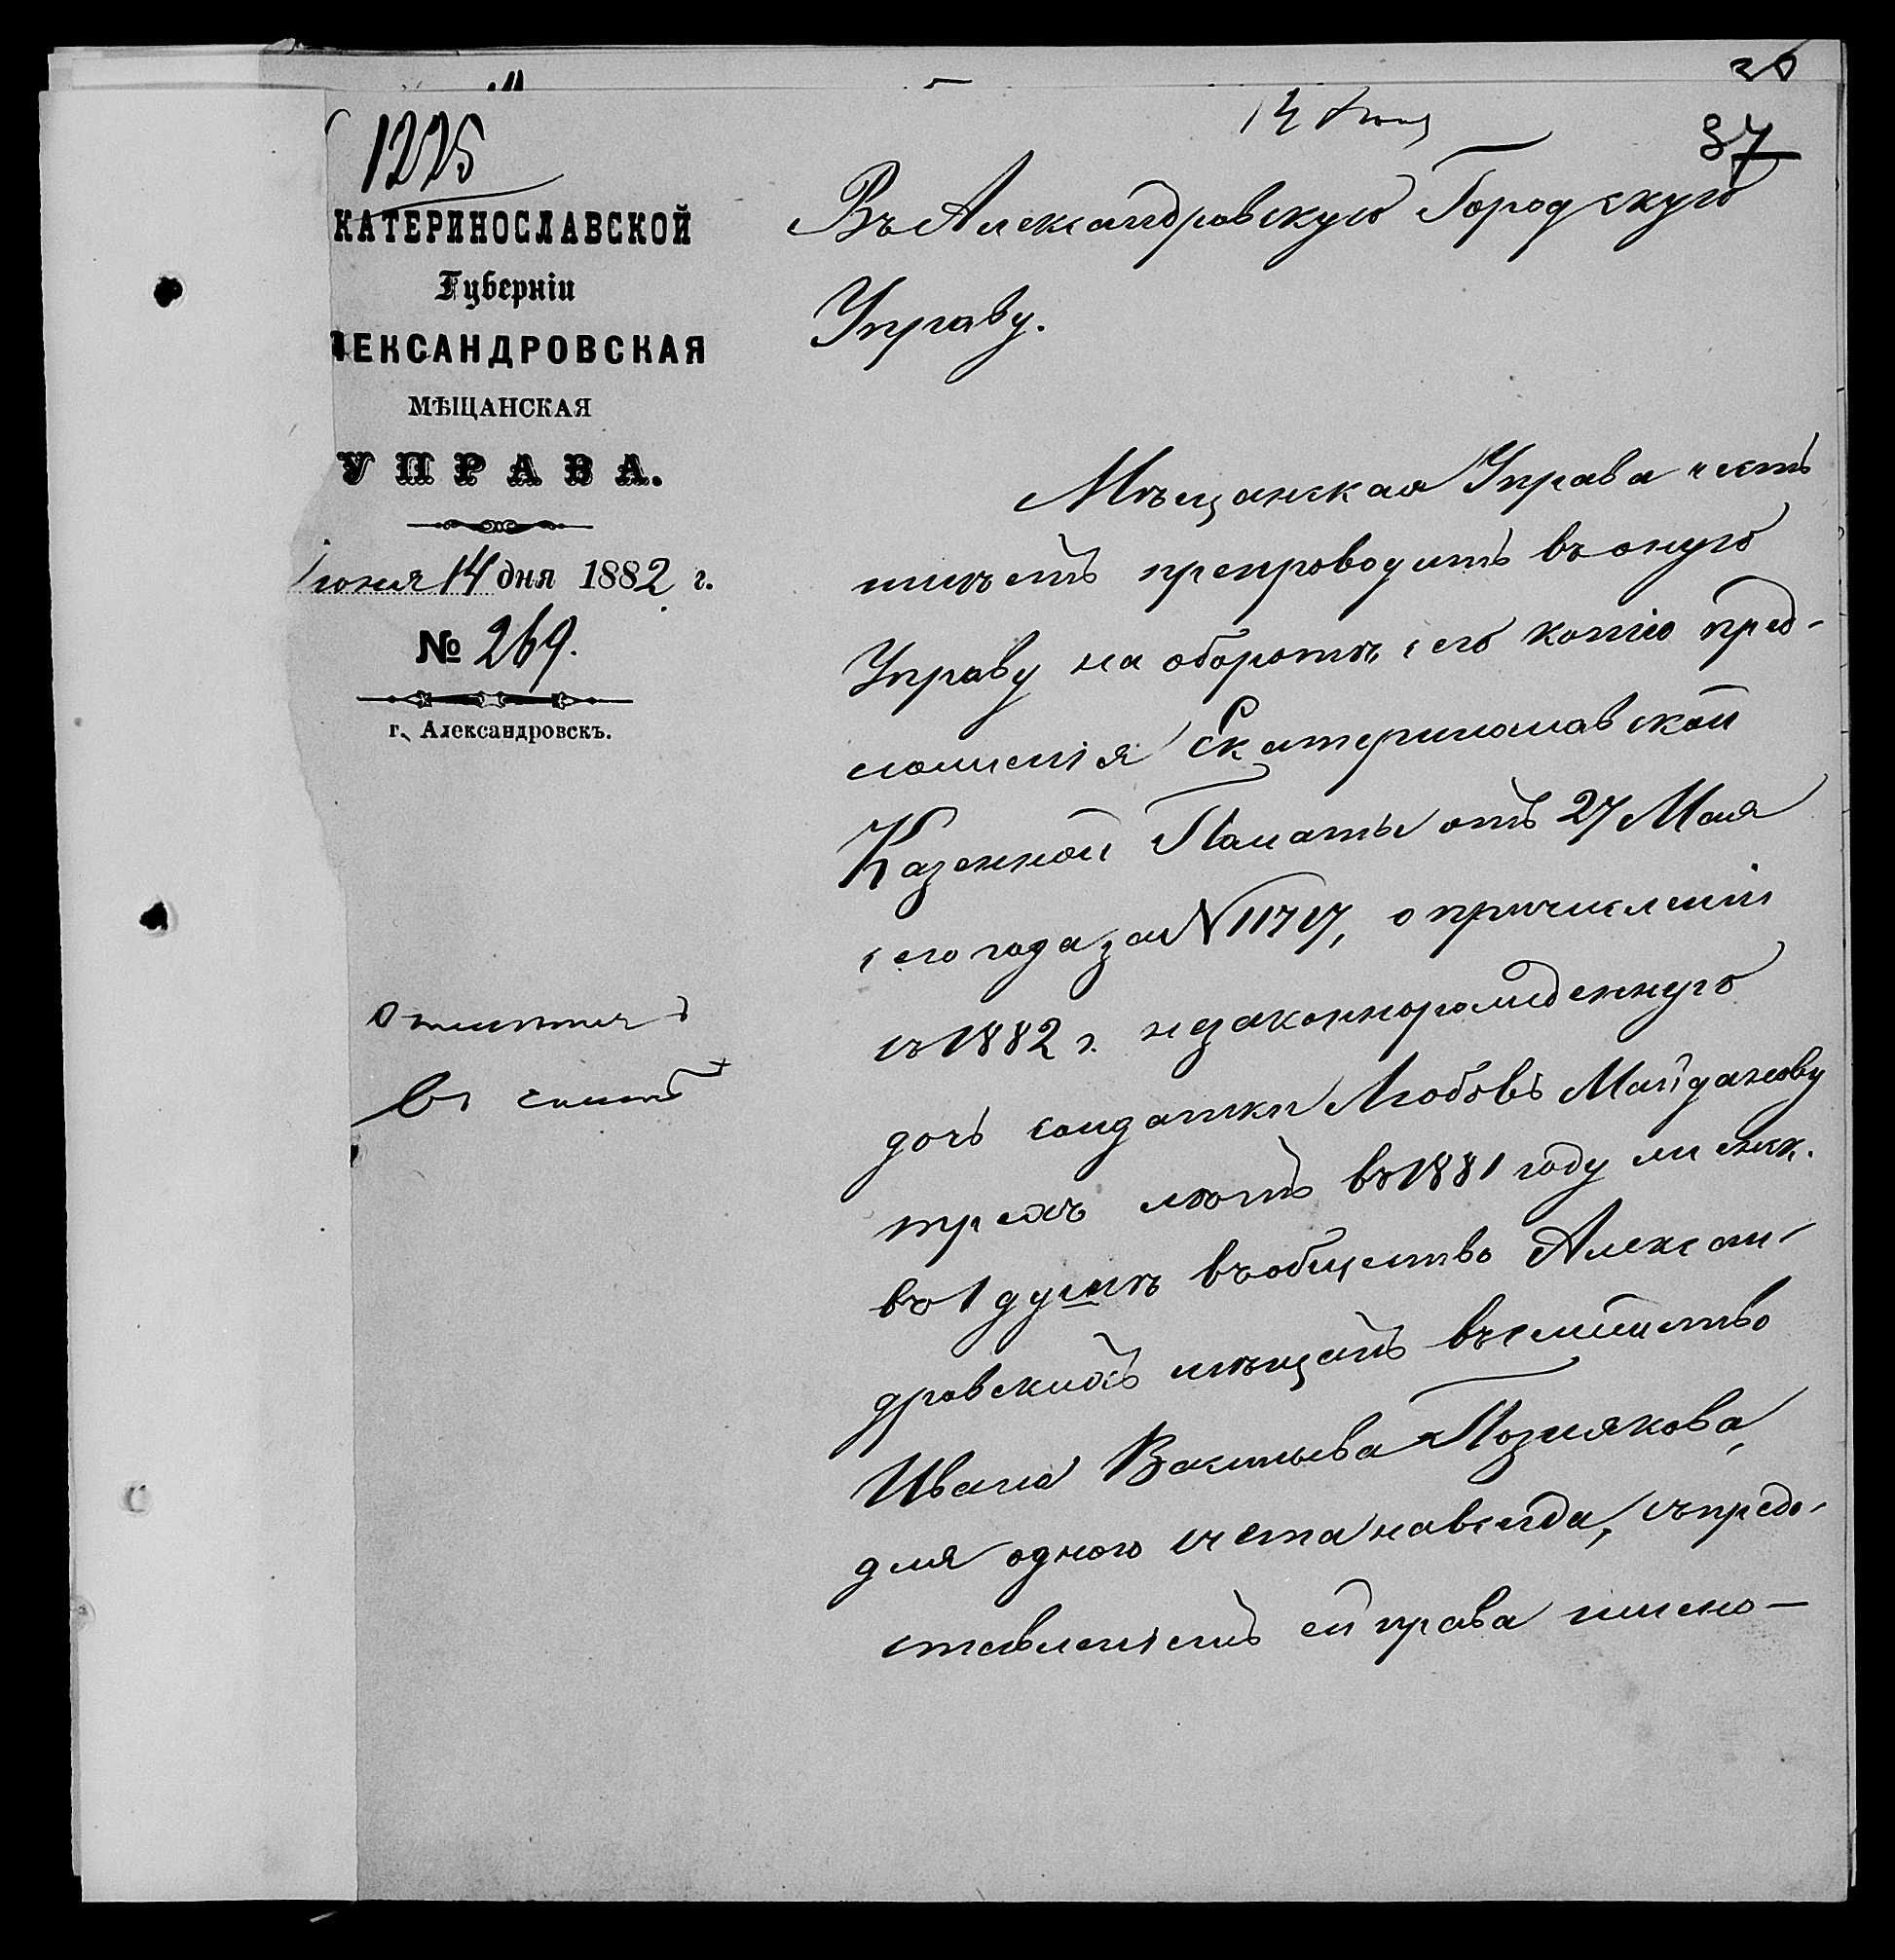 1225
КАТЕРИНОСЛАВСКОЙ
Губерніи
ЛЕКСАНДРОВСКАЯ
МѢЩАНСКАЯ
УПРАВА.
Іюня 14 дня 1882 г.
№ 269.
г. Александровскъ.
14 Іюня
37
Въ Александровскую Городскую
Управу.
Мѣщанская Управа честь
имѣетъ препроводить въ оную
Управу на оборотѣ сего копію пред-
ложенія Екатеринославской
Казенной Палаты отъ 27 Мая
сего года за N 11717, о причисленіи
съ 1882 г. незаконнорожденную
дочь солдатки Любовь Майданову
трехъ лѣтъ въ 1881 году м. женск.
въ 1 душѣ въ общество Алексан-
дровскихъ мѣщанъ въ семейство
Ивана Васильева Познякова
для одного счета навсегда, съ предо-
ставленіемъ ей права имено-